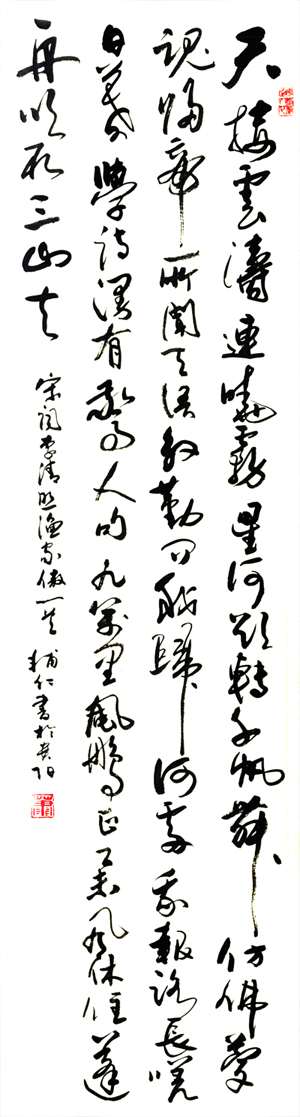 天接雲濤連曉霧星河欲轉千帆舞仿佛夢
魂歸帝所聞天語殷勤問我歸何處我報路長嗟
日暮學詩漫有驚人句九萬里風鵬正舉風休住蓬
舟吹取三山去
宋詞李清照漁家傲一首 輔仁書於貴陽